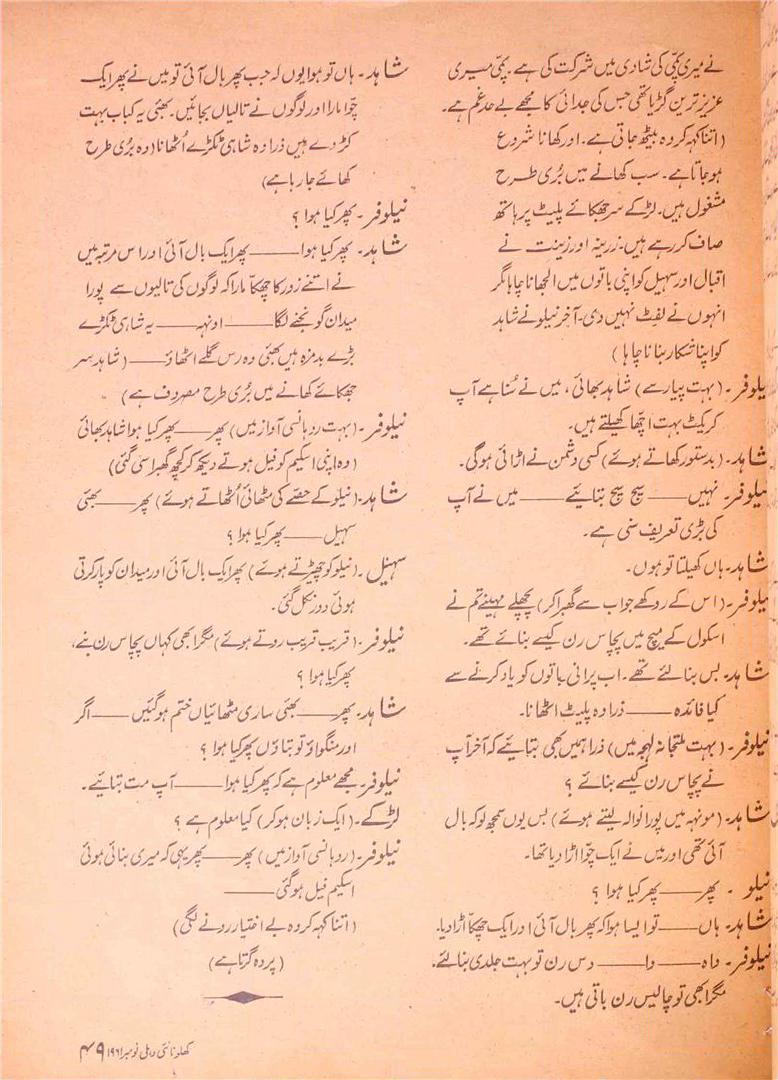 نے میری گپی کی شادی میں شرکت کی ہے۔ پمّی میری
عزیز ترین گڑیا تھی جس کی جدائی کا مجھے بے حد غم ہے۔
(اتنا کہہ کر وہ بیٹھ جاتی ہے۔ اور کھانا شروع
ہو جاتا ہے۔ سب کھانے میں بُری طرح
مشغول ہیں۔ لڑکے سر جھکائے پلیٹ پر ہاتھ
صاف کر رہے ہیں۔ زرینہ اور زینت نے
اقبال اور سہیل کو اپنی باتوں میں الجھانا چاہا مگر
انہوں نے لفٹ نہیں دی۔ آخر نیلو نے شاہد
کو اپنا شکار بنانا چاہا)
نیلوفر۔ (بہت پیار سے) شاہد بھائی، میں نے سُنا ہے آپ
کرکٹ بہت اچھا کھیلتے ہیں۔
شاہد۔ (بدستور کھاتے ہوئے) کسی دشمن نے اڑائی ہوگی۔
نیلوفر۔ نہیں —— سچ سچ بتائیے —— میں نے آپ
کی بڑی تعریف سنی ہے۔
شاہد۔ ہاں کھیلتا تو ہوں۔
نیلوفر۔ (اس کے روکھے جواب سے گھبرا کر) پچھلے مہینے تم نے
اسکول کے میچ میں پچاس رن کیسے بنائے تھے۔
شاہد۔ بس بنا لئے تھے۔ اب پرانی باتوں کو یاد کرنے سے
کیا فائدہ —— ذرا وہ پلیٹ اٹھانا۔
نیلوفر۔ (بہت ملتجانہ لہجہ میں) ذرا ہمیں بھی بتایئے کہ آخر آپ
نے پچاس رن کیسے بنائے ؟
شاہد۔ (مونہہ میں پورا نوالہ لیتے ہوئے) بس یوں سمجھ لو کہ بال
آئی تھی اور میں نے ایک چوّا اڑا دیا تھا۔
نیلو ۔ پھر —— پھر کیا ہوا ؟
شاہد۔ ہاں —— تو ایسا ہوا کہ پھر بال آئی اور ایک چھکّا اڑا دیا۔
نیلوفر۔ واہ —— وا —— دس رن تو بہت جلدی بنا لئے۔
مگر ابھی تو چالیس رن باقی ہیں۔
شاہد۔ ہاں تو ہوا یوں کہ جب پھر بال آئی تو میں نے پھر ایک
چوّا مارا اور لوگوں نے تالیاں بجائیں۔ بھئی یہ کباب بہت
کڑوے ہیں ذرا وہ شاہی ٹکڑے اُٹھانا (وہ بُری طرح
کھائے جا رہا ہے)
نیلوفر۔ پھر کیا ہوا ؟
شاہد۔ پھر کیا ہوا —— پھر ایک بال آئی اور اس مرتبہ میں
نے اتنے زور کا چھکّا مارا کہ لوگوں کی تالیوں سے پورا
میدان گونجنے لگا —— اونہہ —— یہ شاہی ٹکڑے
بڑے بدمزہ ہیں بھئی وہ رس گلے اٹھاؤ —— (شاہد سر
جھکائے کھانے میں بُری طرح مصروف ہے)
نیلوفر۔ (بہت روہانسی آواز میں) پھر —— پھر کیا ہوا شاہد بھائی
(وہ اپنی اسکیم کو فیل ہوتے دیکھ کر کچھ گھبرا سی گئی)
شاہد۔ (نیلو کے حصّے کی مٹھائی اُٹھاتے ہوئے) پھر —— بھئی
سہیل —— پھر کیا ہوا ؟
سہیل۔ (نیلو کو چھیڑتے ہوئے) پھر ایک بال آئی اور میدان کو پار کرتی
ہوئی دور نکل گئی۔
نیلوفر۔ (قریب قریب روتے ہوئے) مگر ابھی کہاں پچاس رن بنے،
پھر کیا ہوا ؟
شاہد۔ پھر —— بھئی ساری مٹھائیاں ختم ہو گئیں —— اگر
اور منگواؤ تو بتاؤں پھر کیا ہوا ؟
نیلوفر۔ مجھے معلوم ہے کہ پھر کیا ہوا —— آپ مت بتائیے۔
لڑکے۔ (ایک زبان ہو کر) کیا معلوم ہے ؟
نیلوفر۔ (روہانسی آواز میں) پھر —— پھر یہی کہ میری بنائی ہوئی
اسکیم فیل ہو گئی ——
(اتنا کہہ کر وہ بے اختیار رونے لگی)
(پردہ گرتا ہے)
کھلونا نئی دہلی نومبر ۱۹۶۱ ۴۹